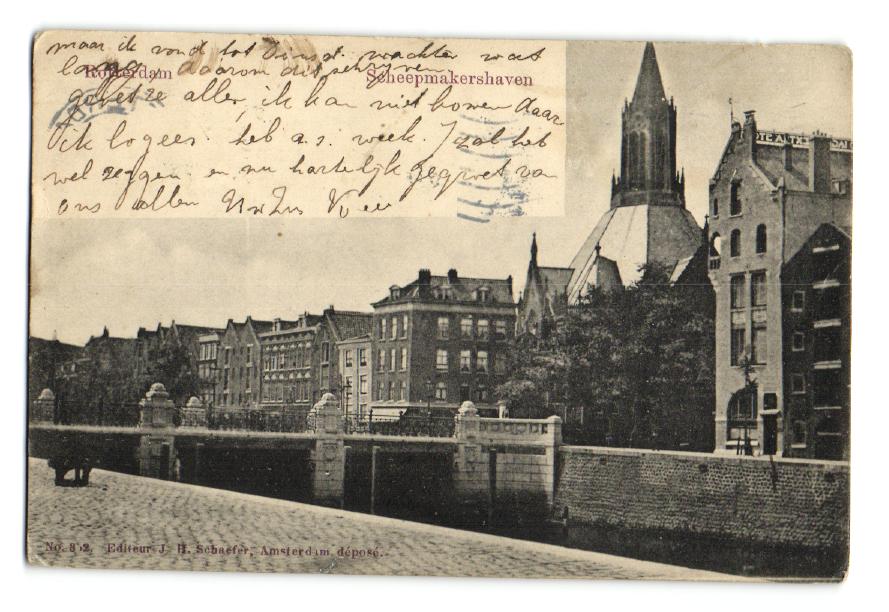 maar ik vond tot Dinsd. wachten wat
lang, daarom dit schrijven
Rotterdam Scheepmakershaven
groet ze allen, ik kan niet komen daar
ik logees heb a.s. week. J zal het
wel zeggen en nu hartelijk gegroet van
ons allen
No. 352. Editeur J. H. Schaefer, Amsterdam déposé.